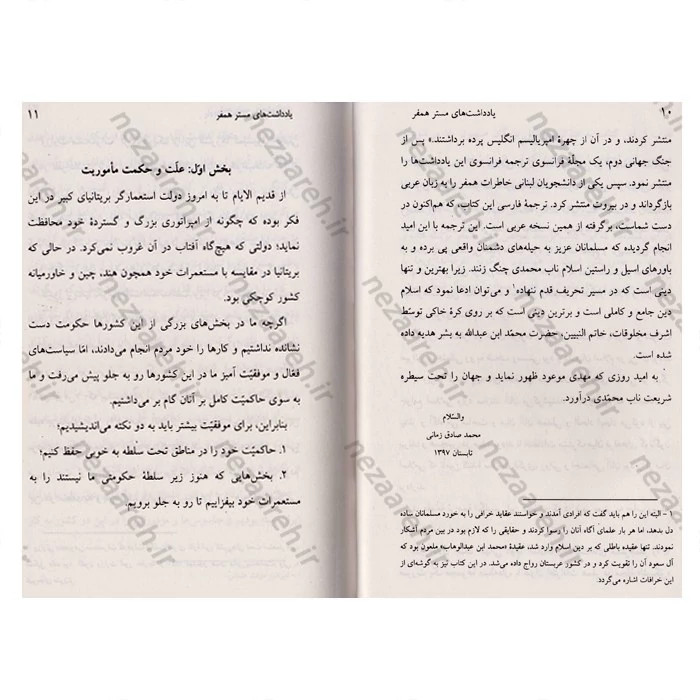 ۱۰ یادداشت‌های مستر همفر
منتشر کردند، و در آن از چهرهٔ امپریالیسم انگلیس پرده برداشتند.» پس از
جنگ جهانی دوم، یک مجلّهٔ فرانسوی ترجمه فرانسوی این یادداشت‌ها را
منتشر نمود. سپس یکی از دانشجویان لبنانی خاطرات همفر را به زبان عربی
بازگرداند و در بیروت منتشر کرد. ترجمهٔ فارسی این کتاب، که هم‌اکنون در
دست شماست، برگرفته از همین نسخه عربی است. این ترجمه با این امید
انجام گردیده که مسلمانان عزیز به حیله‌های دشمنان واقعی پی برده و به
باورهای اسیل و راستین اسلام ناب محمدی چنگ زنند. زیرا بهترین و تنها
دینی است که در مسیر تحریف قدم ننهاده۱ و می‌توان ادعا نمود که اسلام
دین جامع و کاملی است و برترین دینی است که بر روی کرهٔ خاکی توسّط
اشرف مخلوقات، خاتم النبیین، حضرت محمّد ابن عبدالله به بشر هدیه داده
شده است.
به امید روزی که مهدی موعود ظهور نماید و جهان را تحت سیطره
شریعت ناب محمّدی درآورد.
والسّلام
محمد صادق زمانی
تابستان ۱۳۹۷
۱ - البته این را هم باید گفت که افرادی آمدند و خواستند عقاید خرافی را به خورد مسلمانان ساده
دل بدهد، اما هر بار علمای آگاه آنان را رسوا کردند و حقایقی را که لازم بود در بین مردم آشکار
نمودند. تنها عقیده باطلی که بر دین اسلام وارد شد، عقیدهٔ «محمد ابن عبدالوهاب» ملعون بود که
آل سعود آن را تقویت کرد و در کشور عربستان رواج داده می‌شد. در این کتاب نیز به گوشه‌ای از
این خرافات اشاره می‌گردد.
یادداشت‌های مستر همفر ۱۱
بخش اوّل: علّت و حکمت مأموریت
از قدیم الایام تا به امروز دولت استعمارگر بریتانیای کبیر در این
فکر بوده که چگونه از امپراتوری بزرگ و گستردهٔ خود محافظت
نماید؛ دولتی که هیچ‌گاه آفتاب در آن غروب نمی‌کرد. در حالی که
بریتانیا در مقایسه با مستعمرات خود همچون هند، چین و خاورمیانه
کشور کوچکی بود.
اگرچه ما در بخش‌های بزرگی از این کشورها حکومت دست
نشانده نداشتیم و کارها را خود مردم انجام می‌دادند، امّا سیاست‌های
فعّال و موفقیّت آمیز ما در این کشورها رو به جلو پیش می‌رفت و ما
به سوی حاکمیّت کامل بر آنان گام بر می‌داشتیم.
بنابراین، برای موفقیّت بیشتر باید به دو نکته می‌اندیشیدیم؛
۱. حاکمیّت خود را در مناطق تحت سلطه به خوبی حفظ کنیم؛
۲. بخش‌هایی که هنوز زیر سلطهٔ حکومتی ما نیستند را به
مستعمرات خود بیفزاییم تا رو به جلو برویم.
nezaareh.ir